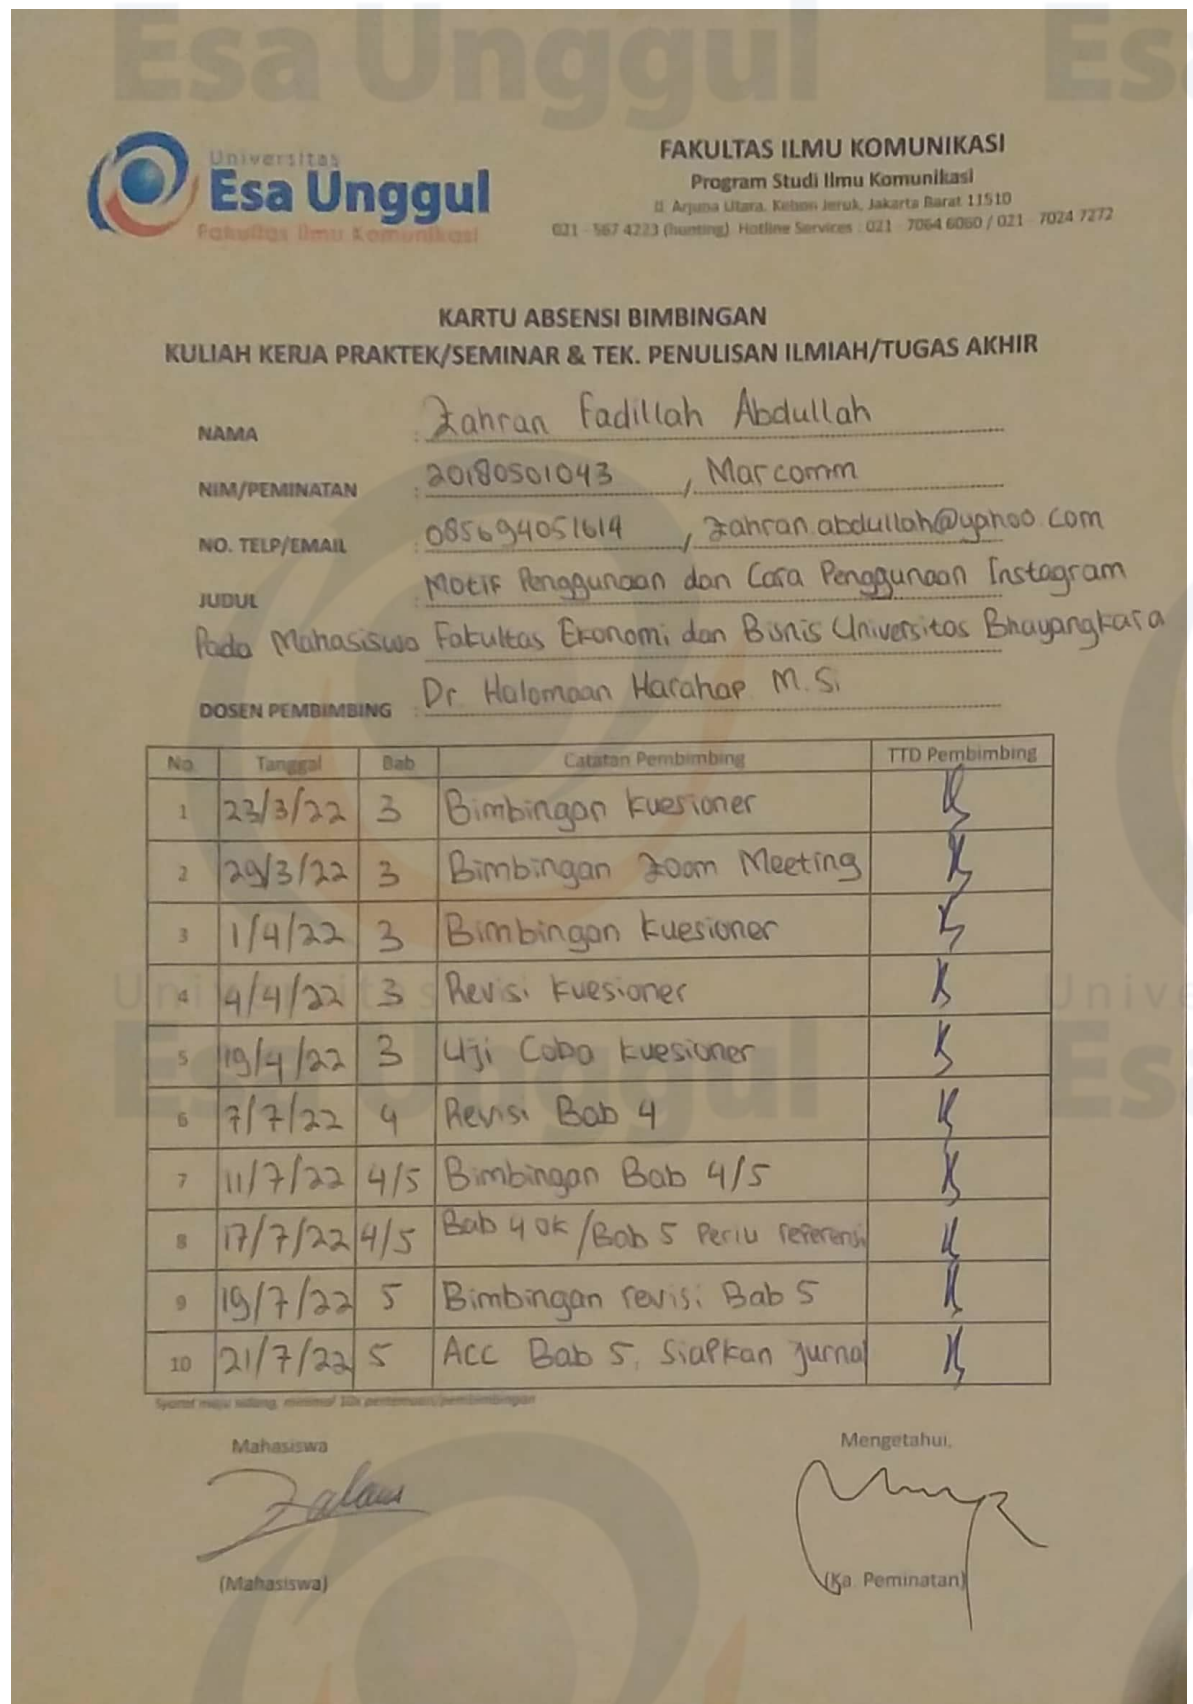 Esa Unggul
Universitas
Esa Unggul
Fakultas Ilmu Komunikasi
FAKULTAS ILMU KOMUNIKASI
Program Studi Ilmu Komunikasi
Jl. Arjuna Utara, Kebon Jeruk, Jakarta Barat 11510
021 - 567 4223 (hunting) Hotline Services : 021 - 7064 6060 / 021 - 7024 7272
KARTU ABSENSI BIMBINGAN
KULIAH KERJA PRAKTEK/SEMINAR & TEK. PENULISAN ILMIAH/TUGAS AKHIR
NAMA : Zahran Fadillah Abdullah
NIM/PEMINATAN : 20180501043 , Marcomm
NO. TELP/EMAIL : 085694051614 , zahran.abdullah@yahoo.com
JUDUL : Motif Penggunaan dan Cara Penggunaan Instagram
Pada Mahasiswa Fakultas Ekonomi dan Bisnis Universitas Bhayangkara
DOSEN PEMBIMBING : Dr. Halomoan Harahap M.Si
No Tanggal Bab Catatan Pembimbing TTD Pembimbing
1 23/3/22 3 Bimbingan kuesioner
2 29/3/22 3 Bimbingan Zoom Meeting
3 1/4/22 3 Bimbingan kuesioner
4 4/4/22 3 Revisi kuesioner
5 19/4/22 3 Uji Coba kuesioner
6 7/7/22 4 Revisi Bab 4
7 11/7/22 4/5 Bimbingan Bab 4/5
8 17/7/22 4/5 Bab 4 ok /Bab 5 Perlu referensi
9 19/7/22 5 Bimbingan revisi Bab 5
10 21/7/22 5 Acc Bab 5, Siapkan jurnal
Syarat maju sidang, minimal 10x pertemuan/pembimbingan
Mahasiswa Mengetahui,
(Mahasiswa) (Ka. Peminatan)